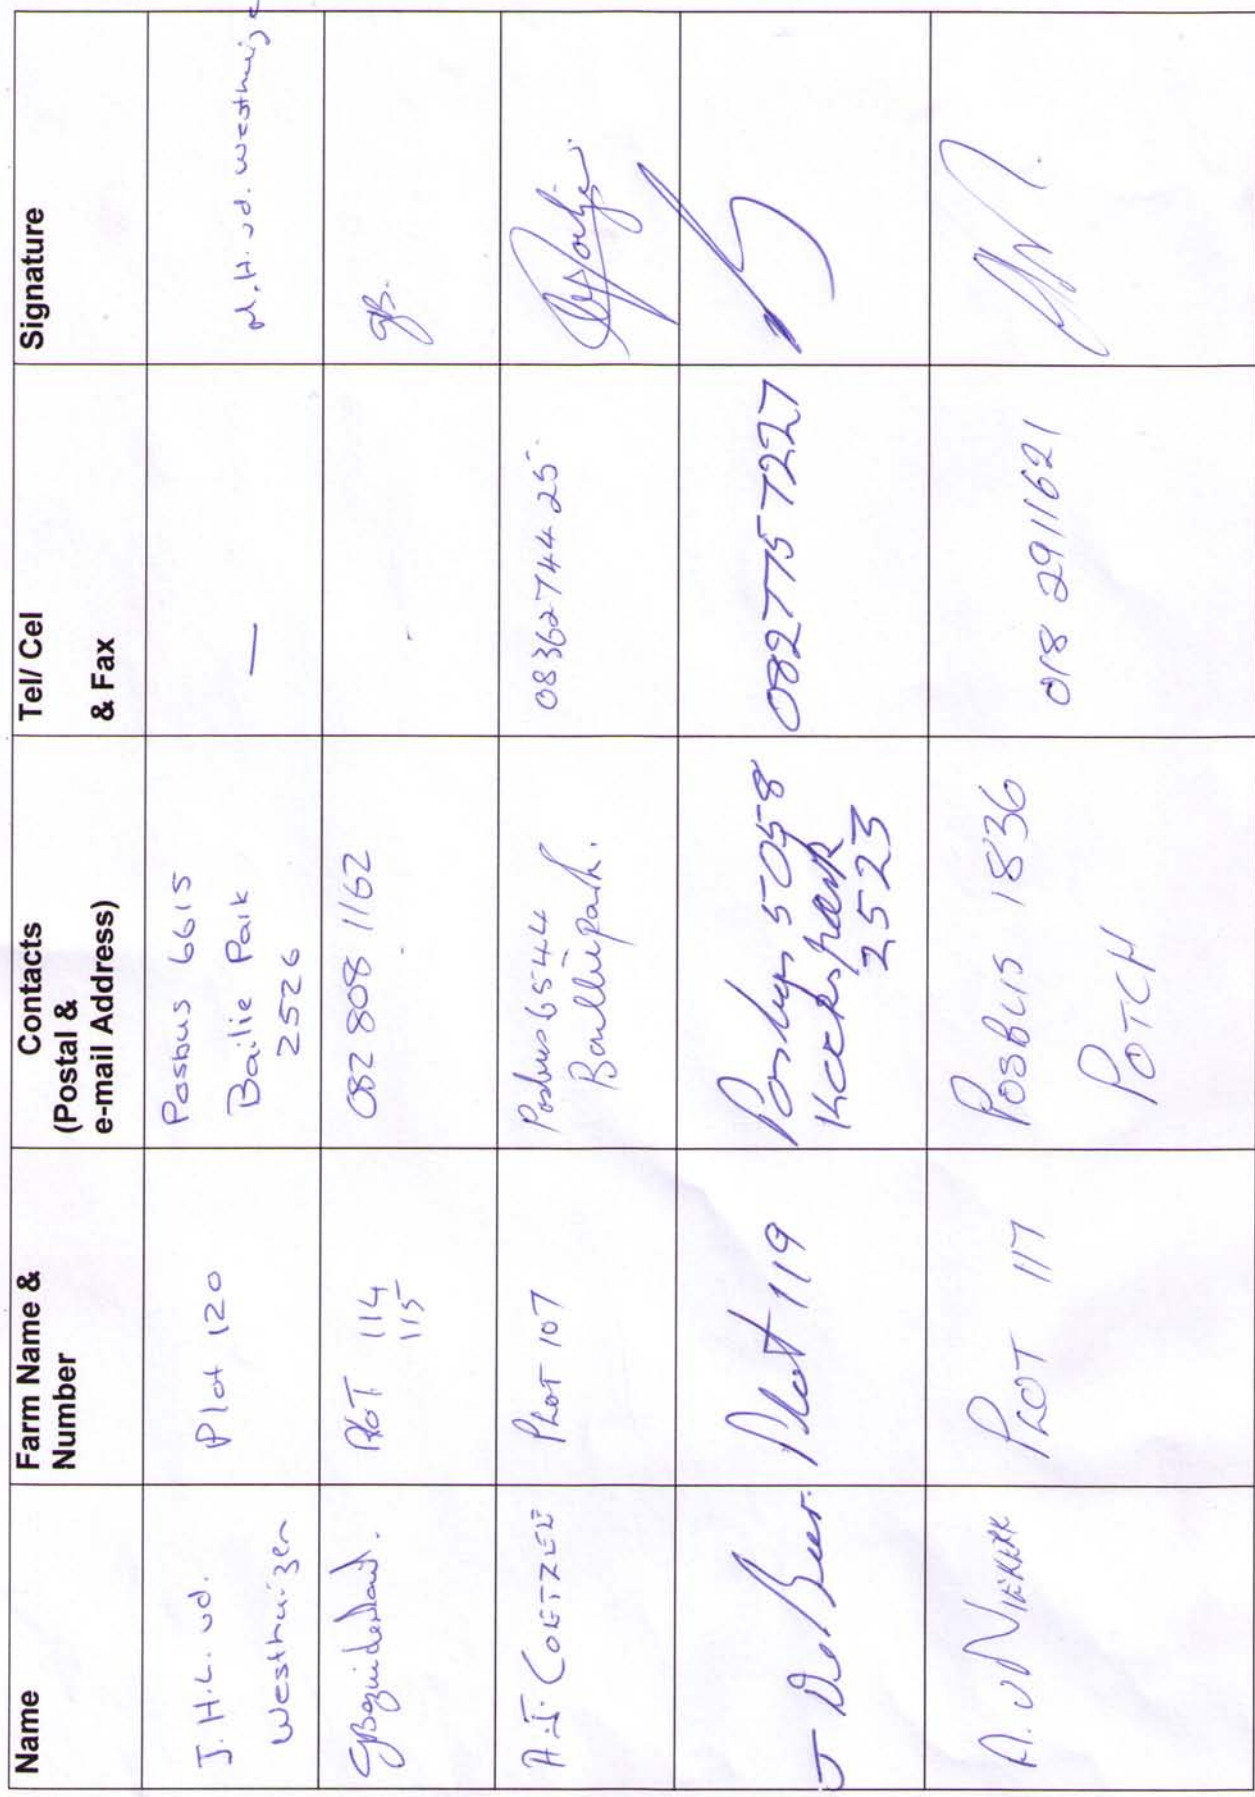 Name
Farm Name &
Number
Contacts
(Postal &
e-mail Address)
Tel/ Cel
& Fax
Signature
J.H.L. vd.
Westhuizen
Plot 120
Posbus 6615
Bailie Park
2526
—
H. vd. Westhuize
PLOT 114
115
082 808 1162
gB.
A.I. COETZEE
PLOT 107
Posbus 6544
Bailliepark.
0836274425
J De Beer
Plot 119
Posbus 5058
Kockspark
2523
0827757227
A. v NIEKERK
PLOT 117
POSBUS 1836
POTCH
018 2911621